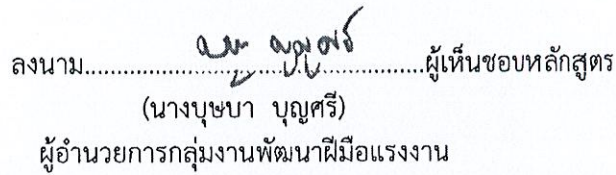 ลงนาม........................................................ผู้เห็นชอบหลักสูตร
(นางบุษบา บุญศรี)
ผู้อำนวยการกลุ่มงานพัฒนาฝีมือแรงงาน